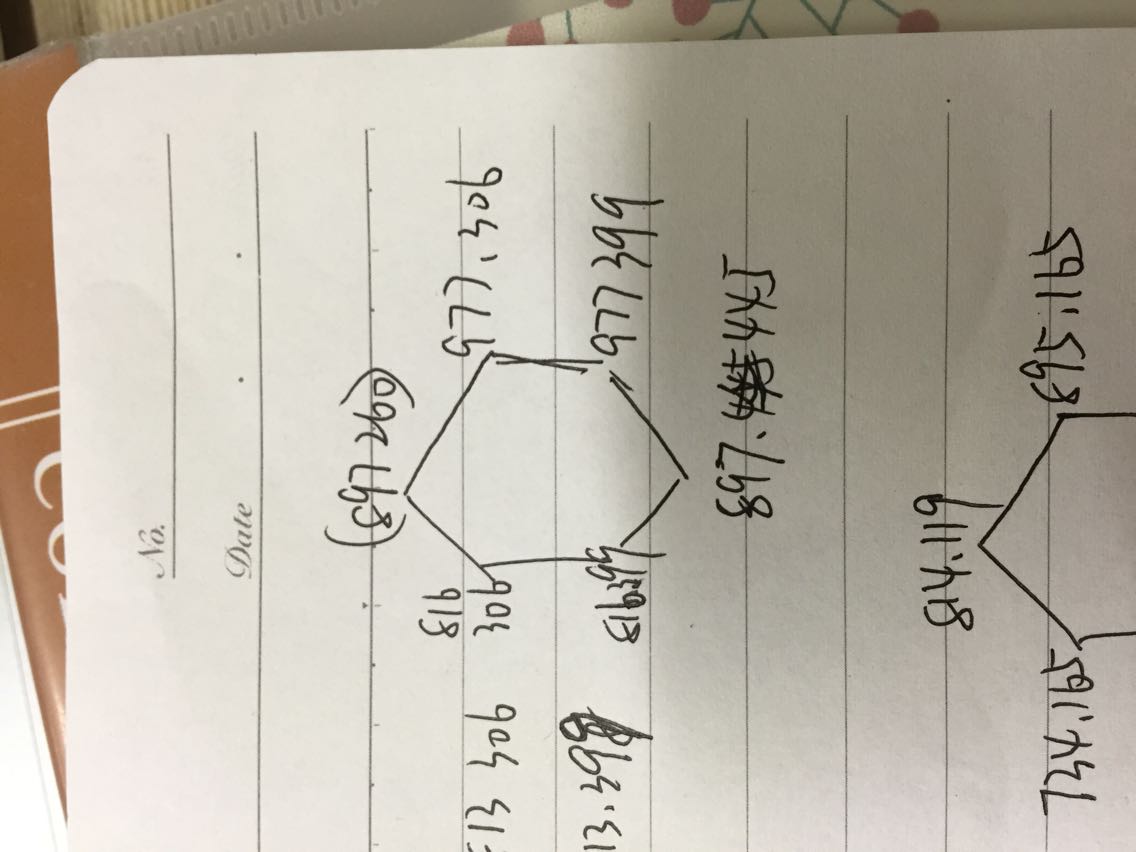 No.
Date
(897 260)
816
306
977.306
13 306
13.399
816.399
977 399
897. 445
814.119
734.165
895.165